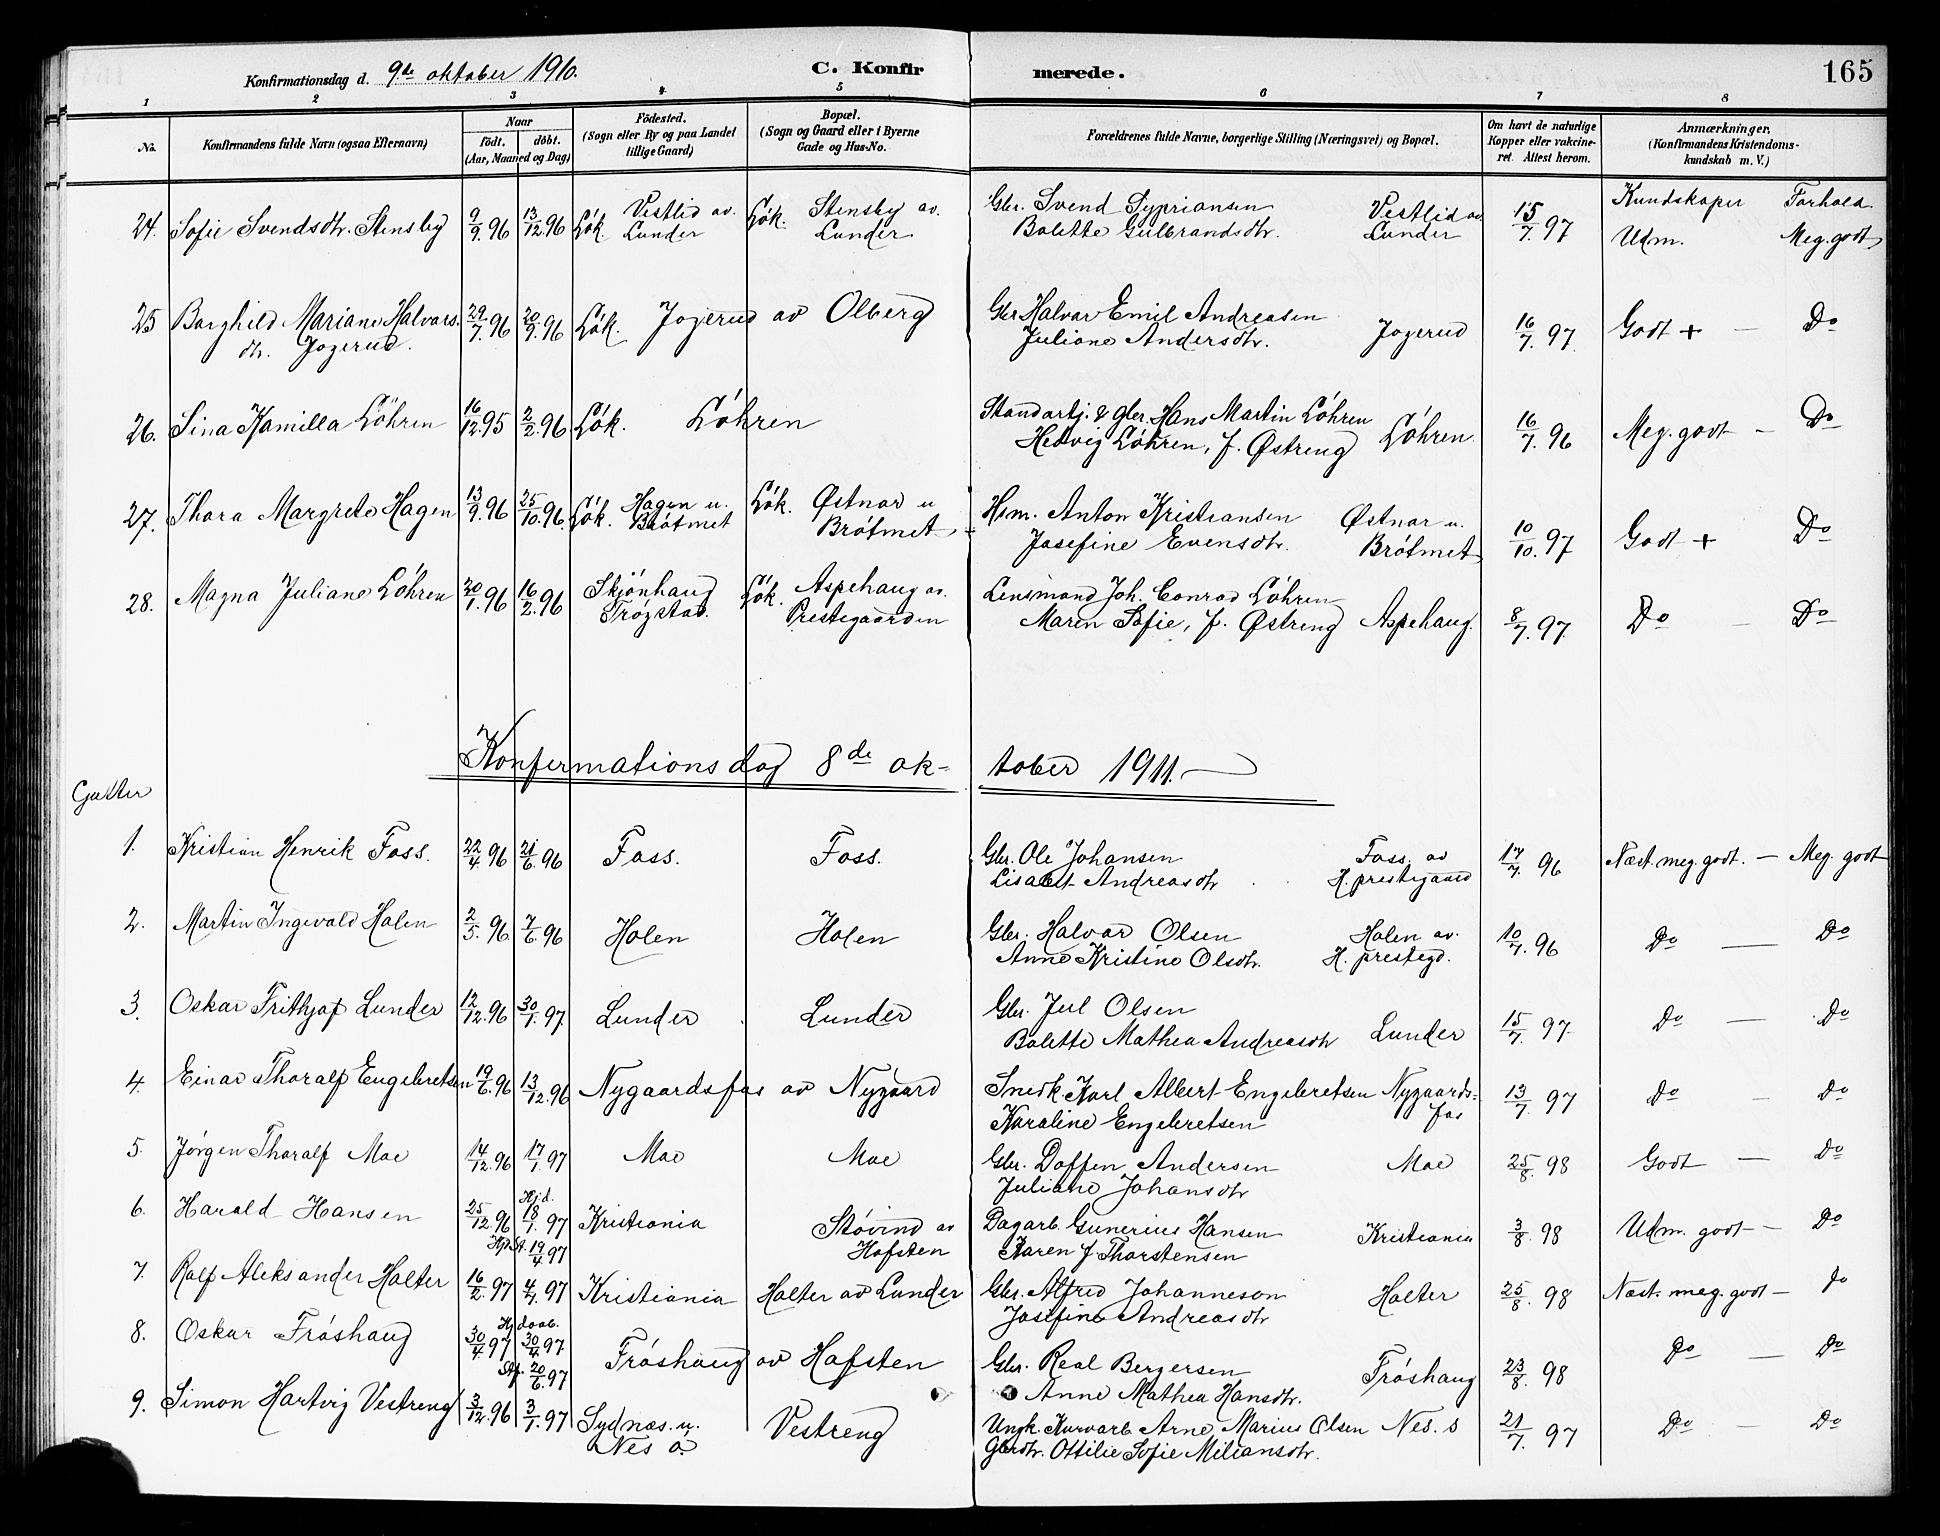 Konfirmationsdag d. 9de oktober 1910. C. Konfirmerede. 165
1 2 3 4 5 6 7 8
No. Konfirmandens fulde Navn (ogsaa Efternavn) Naar födt. döbt. (Aar, Maaned og Dag) Födested. (Sogn eller By og paa Landet tillige Gaard) Bopæl. (Sogn og Gaard eller i Byerne Gade og Hus-No. Forældrenes fulde Navne, borgerlige Stilling (Næringsvei) og Bopæl. Om havt de naturlige Kopper eller vakcineret. Attest herom. Anmærkninger. (Konfirmandens Kristendomskundskab m. V.)
Kundskaper Forhold
24. Sofie Svendsdtr. Stensby 9/9. 96 13/12. 96 Lók. Vestlid av. Lunder Lók. Stensby av. Lunder Gbr. Svend Sypriansen Vestlid av
Bolette Gulbrandsdtr. Lunder 15/7. 97 Udm. Meg. godt
25 Borghild Mariane Halvors. 29/7. 96 20/9. 96 Lók. Jogerud av Olberg Gbr Halvor Emil Andreasen
dtr. Jogerud. Juliane Andersdtr. Jogerud 16/7. 97. Godt + — Do
26. Sina Kamilla Löhren 16/12. 95 2/2. 96 Lók. Lóhren Standartj. & gbr. Hans Martin Lóhren
Hedvig Lóhren, f. Østreng Lóhren 16/7. 96 Meg. godt — Do
27. Thora Margrete Hagen 13/9. 96 25/10. 96. Lók. Hagen u. Brótmet Lók. Østnor u Brótmet Hsm. Anton Kristiansen Østnor u.
Josefine Evensdtr. Brótmet 10/10. 97 Godt + Do
28. Magna Juliane Lóhren 20/1. 96 16/2. 96 Skjónhaug Trógstad. Lók. Aspehaug av. Prestegaarden Lensmand Joh. Conrad Lóhren
Maren Sofie, f. Østreng Aspehaug. 8/7. 97. Do — Do
Konfirmationsdag 8de oktober 1911.
Gutter
1. Kristian Henrik Foss. 22/4. 96 21/6. 96 Foss. Foss. Gbr. Ole Johansen Foss. av
Lisabet Andreasdtr H. prestegaard 17/7. 96 Næst. meg. godt. — Meg. godt
2. Martin Ingevald Holen 2/5. 96. 7/6. 96 Holen Holen Gbr. Halvor Olsen Holen av.
Anne Kristine Olsdtr. H. prestegd. 10/7. 96 Do — Do
3. Oskar Frithjof Lunder 12/12. 96 30/1. 97. Lunder Lunder Gbr. Jul Olsen
Bolette Mathea Andreasdtr Lunder 15/7. 97. Do — Do
4. Einar Thoralf Engebretsen 19/6. 96 13/12. 96 Nygaardsfos av Nygaard Snedk. Karl Albert Engebretsen Nygaards-
Karaline Engebretsen fos 13/7. 97 Do — Do
5. Jórgen Thoralf Moe 14/12. 96 17/1. 97 Moe Moe Gbr. Doffen Andersen Moe 25/8. 98 Godt — Do
Juliane Johansdtr
6. Harald Hansen 25/12. 96 Hjd. 18/1. 97 Kristiania Stóvind av Hofsten Dagarb. Gunerius Hansen Kristiania 3/8. 98 Udm. godt — Do
19/4 97 Karen f Thorstensen
7. Rolf Aleksander Holter 16/2. 97 4/7. 97 Kristiania Holter av Lunder Gbr. Alfred Johannesen Holter 25/8. 98 Næst. meg. godt — do
Josefine Andreasdtr
8. Oskar Fróshaug 30/4 97 Hjdaab. 30/4 97. Fróshaug av Hofsten Gbr. Real Bergersen Fróshaug 23/8. 98 Do — Do
20/6. 97 Anne Mathea Hansdtr.
9. Simon Hartvig Vestreng 3/12. 96 3/1. 97 Sydnæs. u. Nes ö. Vestreng Ungk. Kurvarb. Arne Marius Olsen Nes. s 21/7. 97 Do — Do
Gbrdtr. Ottilie Sofie Miliansdtr.